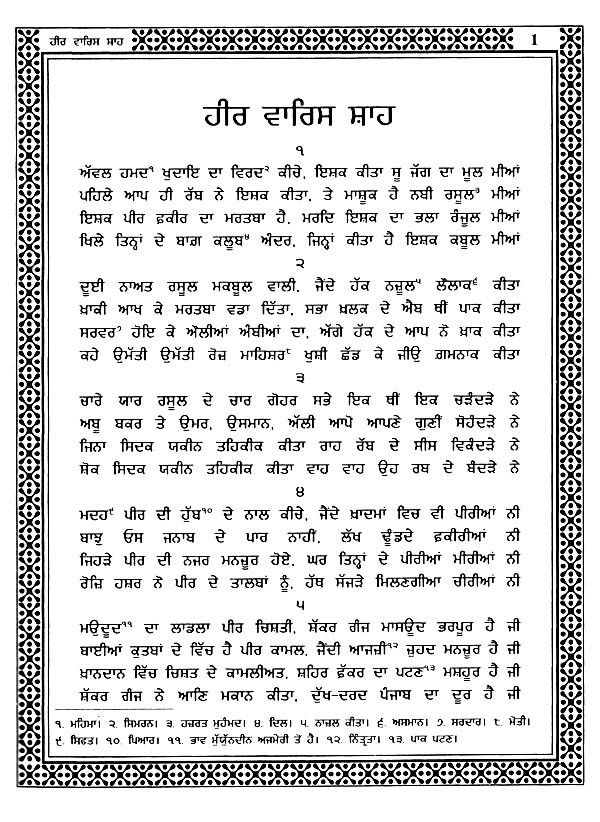 ਹੀਰ ਵਾਰਿਸ ਸ਼ਾਹ 1
ਹੀਰ ਵਾਰਿਸ ਸ਼ਾਹ
੧
ਅੱਵਲ ਹਮਦ੧ ਖ਼ੁਦਾਇ ਦਾ ਵਿਰਦ੨ ਕੀਚੇ, ਇਸ਼ਕ ਕੀਤਾ ਸੂ ਜੱਗ ਦਾ ਮੂਲ ਮੀਆਂ
ਪਹਿਲੇ ਆਪ ਹੀ ਰੱਬ ਨੇ ਇਸ਼ਕ ਕੀਤਾ, ਤੇ ਮਾਸ਼ੂਕ ਹੈ ਨਬੀ ਰਸੂਲ੩ ਮੀਆਂ
ਇਸ਼ਕ ਪੀਰ ਫ਼ਕੀਰ ਦਾ ਮਰਤਬਾ ਹੈ, ਮਰਦਿ ਇਸ਼ਕ ਦਾ ਭਲਾ ਰੰਜੂਲ ਮੀਆਂ
ਖਿਲੇ ਤਿਨ੍ਹਾਂ ਦੇ ਬਾਗ਼ ਕਲੂਬ੪ ਅੰਦਰ, ਜਿਨ੍ਹਾਂ ਕੀਤਾ ਹੈ ਇਸ਼ਕ ਕਬੂਲ ਮੀਆਂ
੨
ਦੂਈ ਨਾਅਤ ਰਸੂਲ ਮਕਬੂਲ ਵਾਲੀ, ਜੈਂਦੇ ਹੱਕ ਨਜ਼ੂਲ੫ ਲੌਲਾਕ੬ ਕੀਤਾ
ਖ਼ਾਕੀ ਆਖ ਕੇ ਮਰਤਬਾ ਵਡਾ ਦਿੱਤਾ, ਸਭਾ ਖ਼ਲਕ ਦੇ ਐਬ ਥੀਂ ਪਾਕ ਕੀਤਾ
ਸਰਵਰ੭ ਹੋਇ ਕੇ ਔਲੀਆਂ ਅੰਬੀਆਂ ਦਾ, ਅੱਗੇ ਹੱਕ ਦੇ ਆਪ ਨੋ ਖ਼ਾਕ ਕੀਤਾ
ਕਹੇ ਉਮੱਤੀ ਉਮੱਤੀ ਰੋਜ਼ ਮਾਹਿਸ਼ਰ੮ ਖੁਸ਼ੀ ਛੱਡ ਕੇ ਜੀਉ ਗ਼ਮਨਾਕ ਕੀਤਾ
੩
ਚਾਰੇ ਯਾਰ ਰਸੂਲ ਦੇ ਚਾਰ ਗੋਹਰ ਸਭੇ ਇਕ ਥੀਂ ਇਕ ਚੜੰਦੜੇ ਨੇ
ਅਬੂ ਬਕਰ ਤੇ ਉਮਰ, ਉਸਮਾਨ, ਅੱਲੀ ਆਪੋ ਆਪਣੇ ਗੁਣੀਂ ਸੋਹੰਦੜੇ ਨੇ
ਜਿਨਾ ਸਿਦਕ ਯਕੀਨ ਤਹਿਕੀਕ ਕੀਤਾ ਰਾਹ ਰੱਬ ਦੇ ਸੀਸ ਵਿਕੰਦੜੇ ਨੇ
ਸ਼ੋਕ ਸਿਦਕ ਯਕੀਨ ਤਹਿਕੀਕ ਕੀਤਾ ਵਾਹ ਵਾਹ ਉਹ ਰਬ ਦੇ ਬੰਦੜੇ ਨੇ
੪
ਮਦਹ੯ ਪੀਰ ਦੀ ਹੁੱਬ੧੦ ਦੇ ਨਾਲ ਕੀਚੇ, ਜੈਂਦੇ ਖ਼ਾਦਮਾਂ ਵਿਚ ਵੀ ਪੀਰੀਆਂ ਨੀ
ਬਾਝੁ ਓਸ ਜਨਾਬ ਦੇ ਪਾਰ ਨਾਹੀਂ, ਲੱਖ ਢੂੰਡਦੇ ਫ਼ਕੀਰੀਆਂ ਨੀ
ਜਿਹੜੇ ਪੀਰ ਦੀ ਨਜਰ ਮਨਜ਼ੂਰ ਹੋਏ, ਘਰ ਤਿਨ੍ਹਾਂ ਦੇ ਪੀਰੀਆਂ ਮੀਰੀਆਂ ਨੀ
ਰੋਜ਼ਿ ਹਸ਼ਰ ਨੋ ਪੀਰ ਦੇ ਤਾਲਬਾਂ ਨੂੰ, ਹੱਥ ਸੱਜੜੇ ਮਿਲਣਗੀਆ ਚੀਰੀਆਂ ਨੀ
੫
ਮਉਦੂਦ੧੧ ਦਾ ਲਾਡਲਾ ਪੀਰ ਚਿਸ਼ਤੀ, ਸ਼ੱਕਰ ਗੰਜ ਮਾਸਊਦ ਭਰਪੂਰ ਹੈ ਜੀ
ਬਾਈਆਂ ਕੁਤਬਾਂ ਦੇ ਵਿੱਚ ਹੈ ਪੀਰ ਕਾਮਲ, ਜੈਂਦੀ ਆਜਜ਼ੀ੧੨ ਜ਼ੁਹਦ ਮਨਜ਼ੂਰ ਹੈ ਜੀ
ਖ਼ਾਨਦਾਨ ਵਿੱਚ ਚਿਸ਼ਤ ਦੇ ਕਾਮਲੀਅਤ, ਸ਼ਹਿਰ ਫ਼ੱਕਰ ਦਾ ਪਟਣ੧੩ ਮਸ਼ਹੂਰ ਹੈ ਜੀ
ਸ਼ੱਕਰ ਗੰਜ ਨੇ ਆਣਿ ਮਕਾਨ ਕੀਤਾ, ਦੁੱਖ-ਦਰਦ ਪੰਜਾਬ ਦਾ ਦੂਰ ਹੈ ਜੀ
੧. ਮਹਿਮਾਂ ੨. ਸਿਮਰਨ। ੩. ਹਜ਼ਰਤ ਮੁਹੰਮਦ। ੪. ਦਿਲ। ੫. ਨਾਜ਼ਲ ਕੀਤਾ। ੬. ਅਸਮਾਨ। ੭. ਸਰਦਾਰ। ੮. ਮੋਤੀ।
੯. ਸਿਫ਼ਤ। ੧੦. ਪਿਆਰ। ੧੧. ਭਾਵ ਮੁੱਯੁੱਨਦੀਨ ਅਜਮੇਰੀ ਤੋਂ ਹੈ। ੧੨. ਨਿੰਤ੍ਰਤਾ। ੧੩. ਪਾਕ ਪਟਣ।